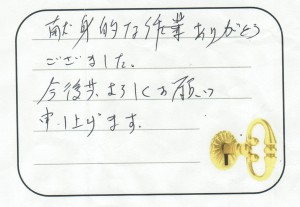 献身的な作業ありがとう
ございました。
今後共よろしくお願い
申し上げます。